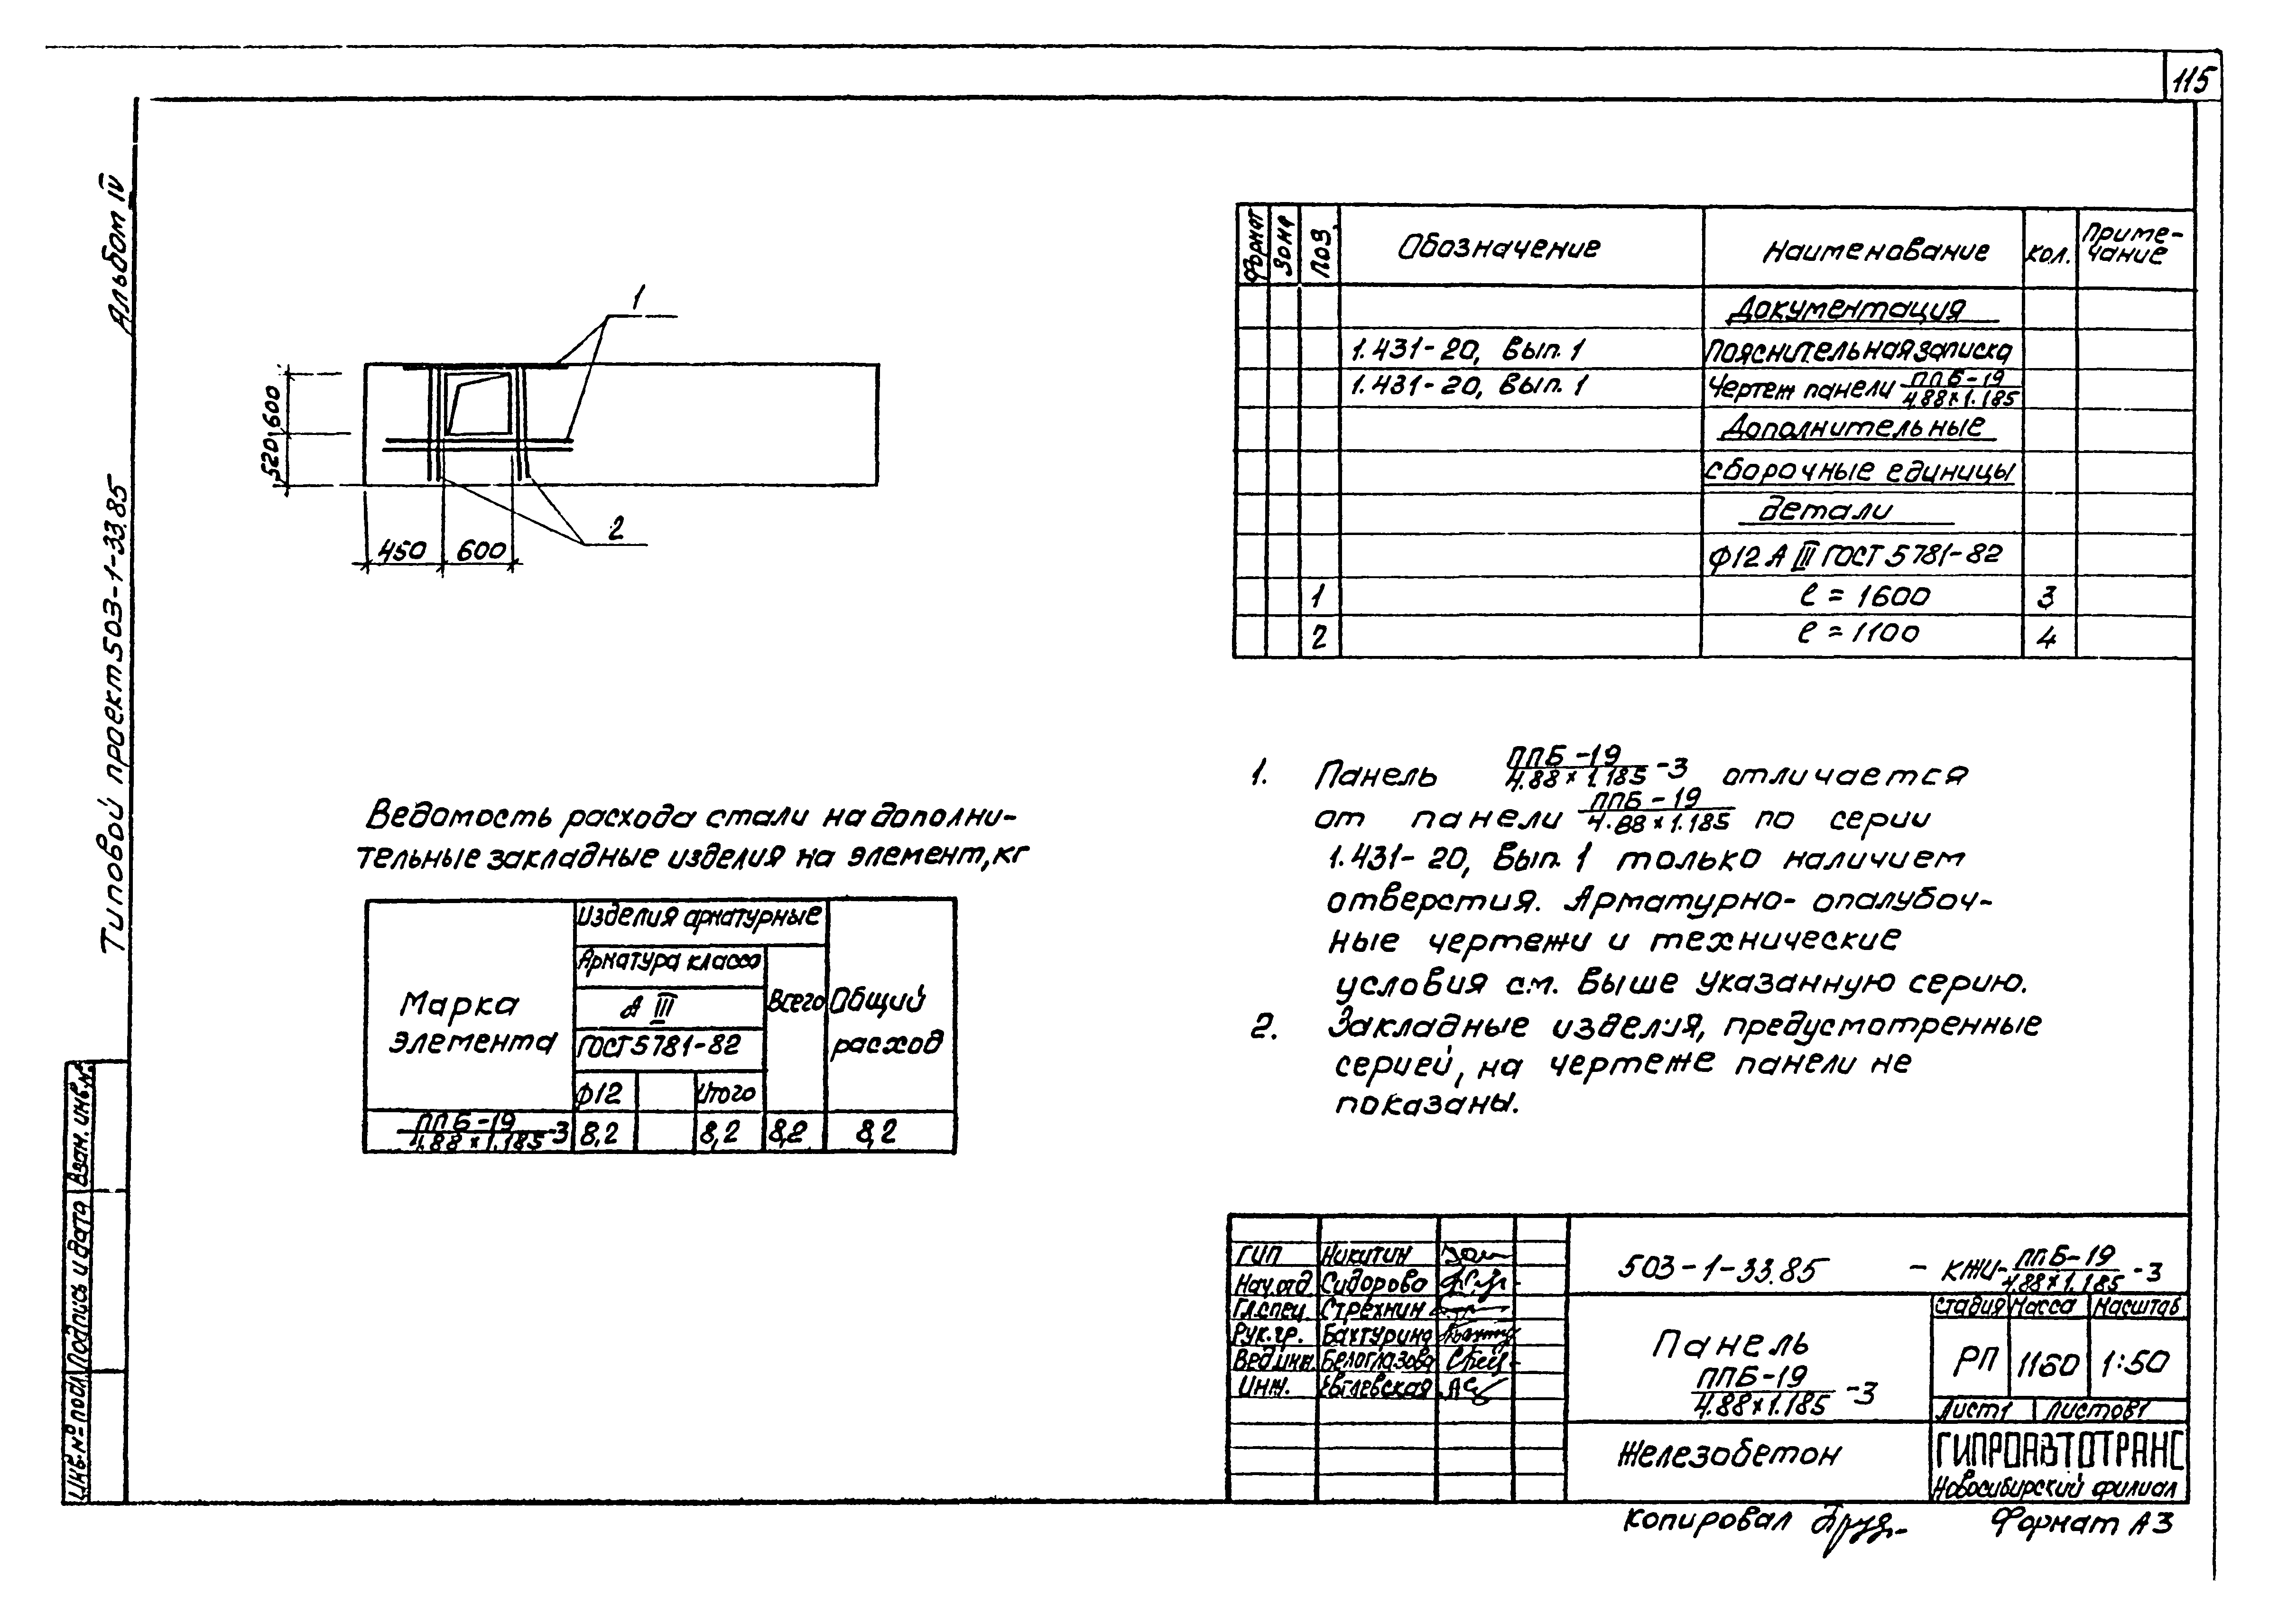 115
Альбом IV
Типовой проект 503-1-33.85
Взам. инв. №
Подпись и дата
Инв. № подл.
1
600
520
2
450 600
Формат Зона Поз. Обозначение Наименование Кол. Приме-
чание
Документация
1.431-20, Вып. 1 Пояснительная записка
1.431-20, Вып. 1 Чертеж панели ППБ-19
4.88×1.185
Дополнительные
сборочные единицы
Детали
Ф12 А III ГОСТ 5781-82
1 ℓ = 1600 3
2 ℓ = 1100 4
Ведомость расхода стали на дополни-
тельные закладные изделия на элемент, кг
Марка
элемента
Изделия арматурные
Арматура класса
А III
ГОСТ 5781-82
Ф12 Итого
Всего
Общий
расход
ППБ-19
4.88×1.185 -3 8,2 8,2 8,2 8,2
1. Панель ППБ-19
4.88×1.185 -3 отличается
от панели ППБ-19
4.88×1.185 по серии
1.431-20, Вып. 1 только наличием
отверстия. Арматурно-опалубоч-
ные чертежи и технические
условия см. выше указанную серию.
2. Закладные изделия, предусмотренные
серией, на чертеже панели не
показаны.
ГИП Никитин
Нач.отд Сидорова
Гл.спец. Стрехнин
Рук.гр. Бахтурина
Вед.инж. Белоглазова
Инж. Евглевская
503-1-33.85 - КЖИ- ППБ-19
4.88×1.185 -3
Панель
ППБ-19
4.88×1.185 -3
Стадия Масса Масштаб
РП 1160 1:50
Лист 1 Листов 1
Железобетон
ГИПРОАВТОТРАНС
Новосибирский филиал
Копировал
Формат А3